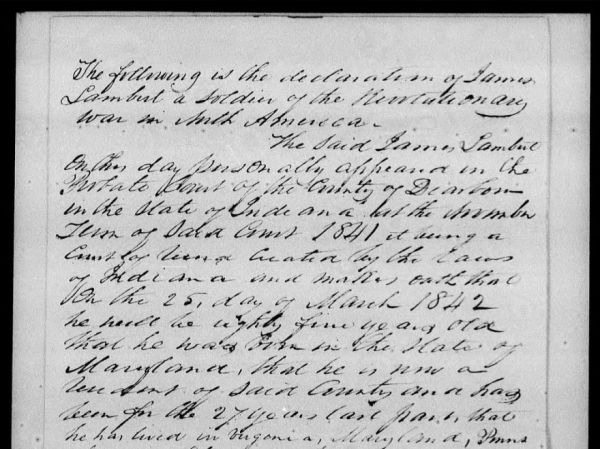 The following is the declaration of James
Lambert a soldier of the Revolutionary
war in North America.
The Said James Lambert
on this day personally appeared in the
Probate Court of the County of Dearborn
in the State of Indiana, at the November
Term of said Court 1841 it being a
Court of Record created by the laws
of Indiana and makes oath that
On the 25, day of March 1842
he will be eighty five years old
that he was born in the State of
Maryland, that he is now a
resident of said County and has
been for the 27 years last past, that
he has lived in Virginia, Maryland, Penns